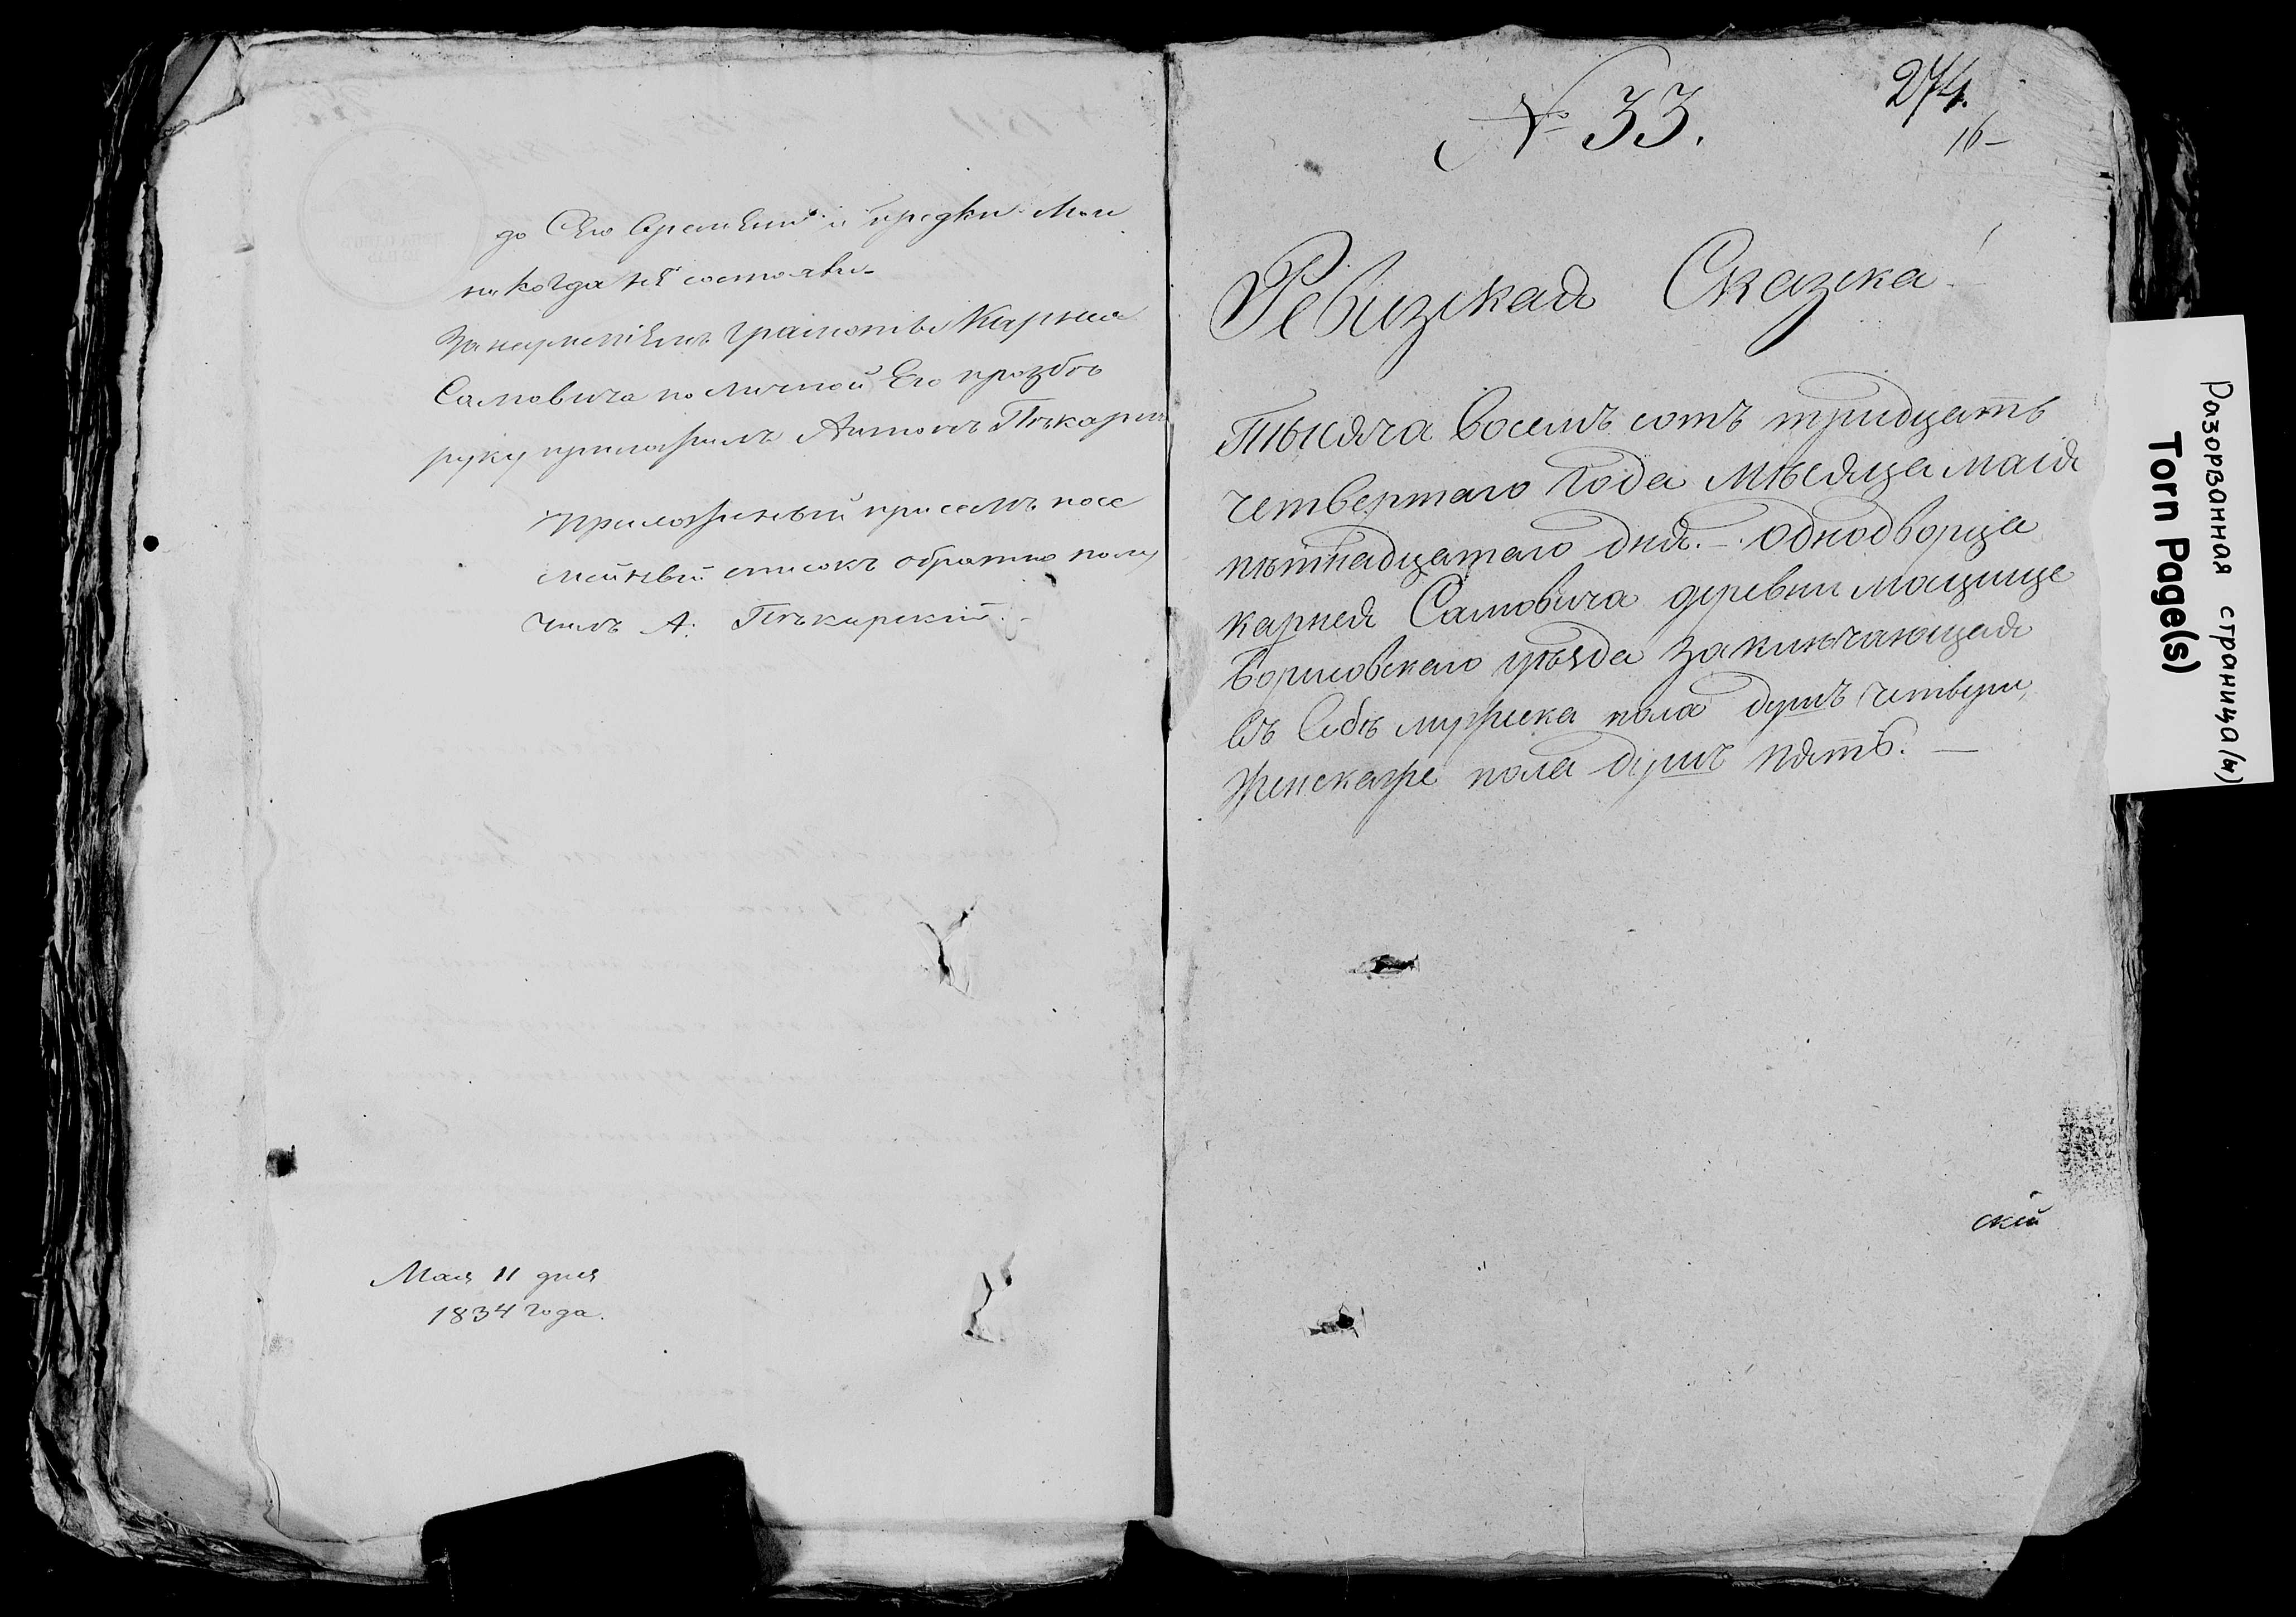 до Сего времени и предки Мои
никогда не состояли
За неуменіем грамоты Карнея
Самовича по личной Его прозбѣ
руку приложилъ Антонъ Пѣкарск
Приложенный при семъ посе
мейный список обратно полу
чилъ А: Пѣкарскій.
Мая 11 дня
1834 года.
№ 33.
274.
16–
Ревизкая Сказка
Тысяча Восемъ сотъ тридцать
четвертаго Года Мѣсяца маія
пѣтнадцатаго дня. – Однодворца
карнея Самовича деревни мащице
Борисовскаго уѣзда Заключающая
въ Себѣ мужска пола душъ четвери,
женскаже пола душъ пять. —
скій
Разорванная страница/(ы)
Torn Page(s)